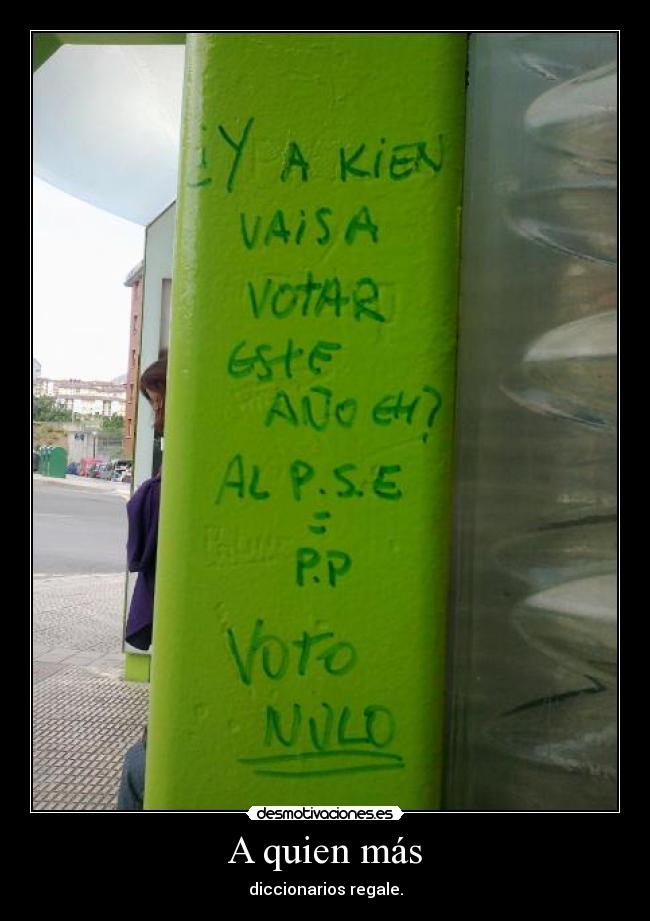 ¿Y A KIEN
VAIS A
VOTAR
ESTE
AÑO EH?
AL P.S.E
=
P.P
VOTO
NULO
desmotivaciones.es
A quien más
diccionarios regale.